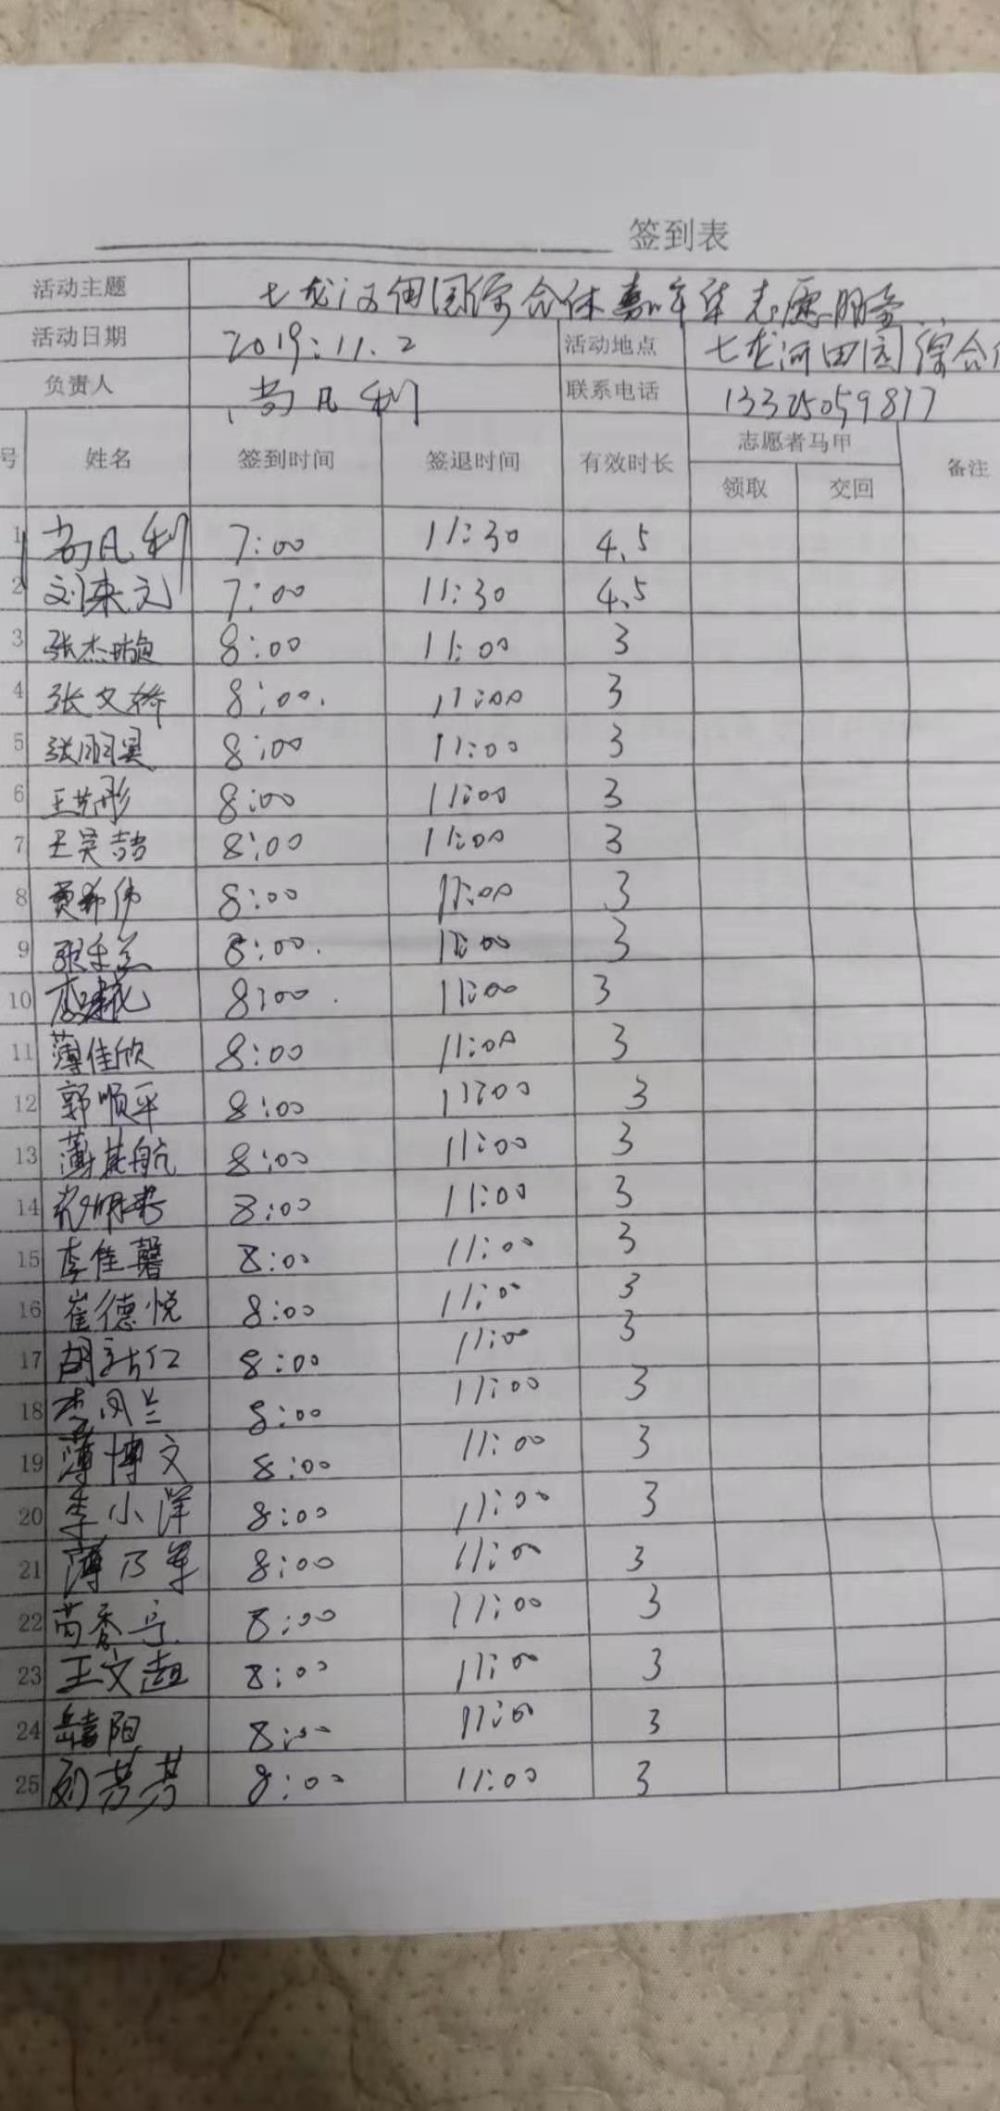 签到表
活动主题 七龙河田园综合体嘉年华志愿服务
活动日期 2019.11.2 活动地点 七龙河田园综合
负责人 尚凡利 联系电话 13325059817
号 姓名 签到时间 签退时间 有效时长 志愿者马甲 备注
领取 交回
1 尚凡利 7:00 11:30 4.5
2 刘来元 7:00 11:30 4.5
3 张杰 8:00 11:00 3
4 张文桥 8:00 11:00 3
5 张朋昊 8:00 11:00 3
6 王艺彤 8:00 11:00 3
7 王昊喆 8:00 11:00 3
8 贾希伟 8:00 11:00 3
9 张 8:00 11:00 3
10 李 花 8:00 11:00 3
11 薄佳欣 8:00 11:00 3
12 郭顺平 8:00 11:00 3
13 薄其航 8:00 11:00 3
14 8:00 11:00 3
15 李佳馨 8:00 11:00 3
16 崔德悦 8:00 11:00 3
17 胡 仁 8:00 11:00 3
18 李凤兰 8:00 11:00 3
19 薄博文 8:00 11:00 3
20 李小洋 8:00 11:00 3
21 薄乃军 8:00 11:00 3
22 苟秀 8:00 11:00 3
23 王文超 8:00 11:00 3
24 岳喜阳 8:00 11:00 3
25 刘芳芳 8:00 11:00 3